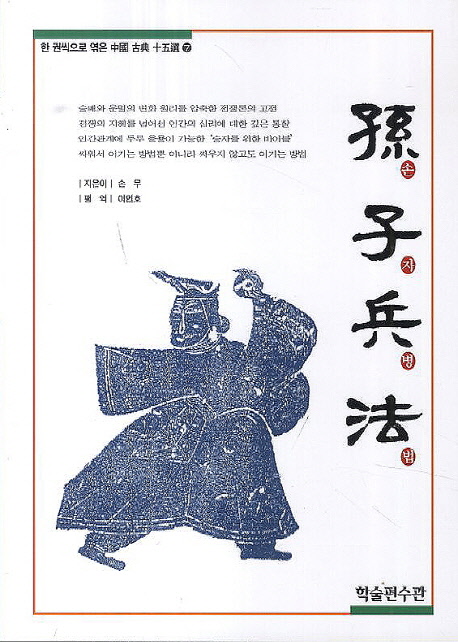 한 권씩으로 엮은 中國 古典 十五選 7
승패와 운명의 변화 원리를 압축한 전쟁론의 고전
전쟁의 지혜를 넘어선 인간의 심리에 대한 깊은 통찰
인간관계에 두루 응용이 가능한 '승자를 위한 바이블'
싸워서 이기는 방법뿐 아니라 싸우지 않고도 이기는 방법
|지은이| 손 무
|평 역| 이언호
孫子兵法
손자병법
학술편수관